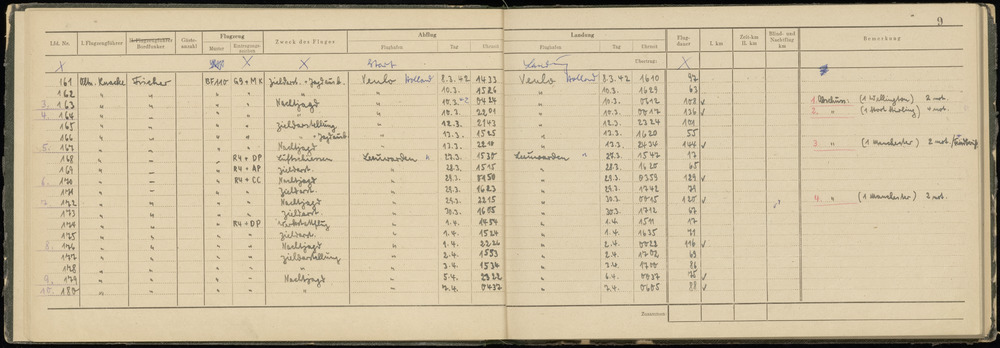 9
Lfd. Nr. I. Flugzeugführer II. Flugzeugführer Bordfunker Gästeanzahl Flugzeug Muster Eintragungszeichen Zweck des Fluges Abflug Flughafen Tag Uhrzeit Landung Flughafen Tag Uhrzeit Flugdauer I. km Zeit-km II. km Blind- und Nachtflug km Bemerkung
X X X Start Landung Übertrag: X
161 Fischer BF110 G9+MK Zieldarst. Venlo Holland 8.3.42 1433 Venlo Holland 8.3.42 1610 97
162 " " " " " 10.3. 1526 " 10.3. 1629 63
3. 163 " " " " Nachtjagd " 10.3.42 0424 " 10.3. 0612 108 ✓ 1. Abschuss. (1 Wellington) 2 mot.
4. 164 " " " " " " 10.3. 2201 " 10.3. 0017 136 ✓ 2. " 4 mot.
165 " " " " Zieldarstellung " 12.3. 2143 " 12.3. 2324 101
166 " " " " " 13.3. 1525 " 13.3. 1620 55
5. 167 " " " " Nachtjagd " 13.3. 2210 " 13.3. 2434 144 ✓ 3. " (1 Manchester) 2 mot.
168 " " " R4+DP Leeuwarden 27.3. 1530 Leeuwarden " 27.3. 1547 17
169 " " " R4+AP Zieldarst. " 28.3. 1515 " 28.3. 1620 65
6. 170 " " " R4+CC Nachtjagd " 29.3. 0150 " 29.3. 0359 129 ✓
171 " " " " Zieldarst. " 29.3. 1623 " 29.3. 1742 79
7. 172 " " " " Nachtjagd " 29.3. 2215 " 30.3. 0015 120 ✓ 4. " (1 Manchester) 2 mot.
173 " " " " Zieldarst. " 30.3. 1605 " 30.3. 1712 67
174 " " " R4+DP " 1.4. 1454 " 1.4. 1511 17
175 " " " " Zieldarst. " 1.4. 1524 " 1.4. 1635 71
8. 176 " " " " Nachtjagd " 1.4. 2226 " 2.4. 0022 116 ✓
177 " " " " Zieldarstellung " 2.4. 1553 " 2.4. 1702 69
178 " " " " " " 3.4. 1534 " 3.4. 1700 86
9. 179 " " " " Nachtjagd " 5.4. 2322 " 6.4. 0037 75 ✓
10. 180 " " " " " " 7.4. 0437 " 7.4. 0605 88 ✓
Zusammen: